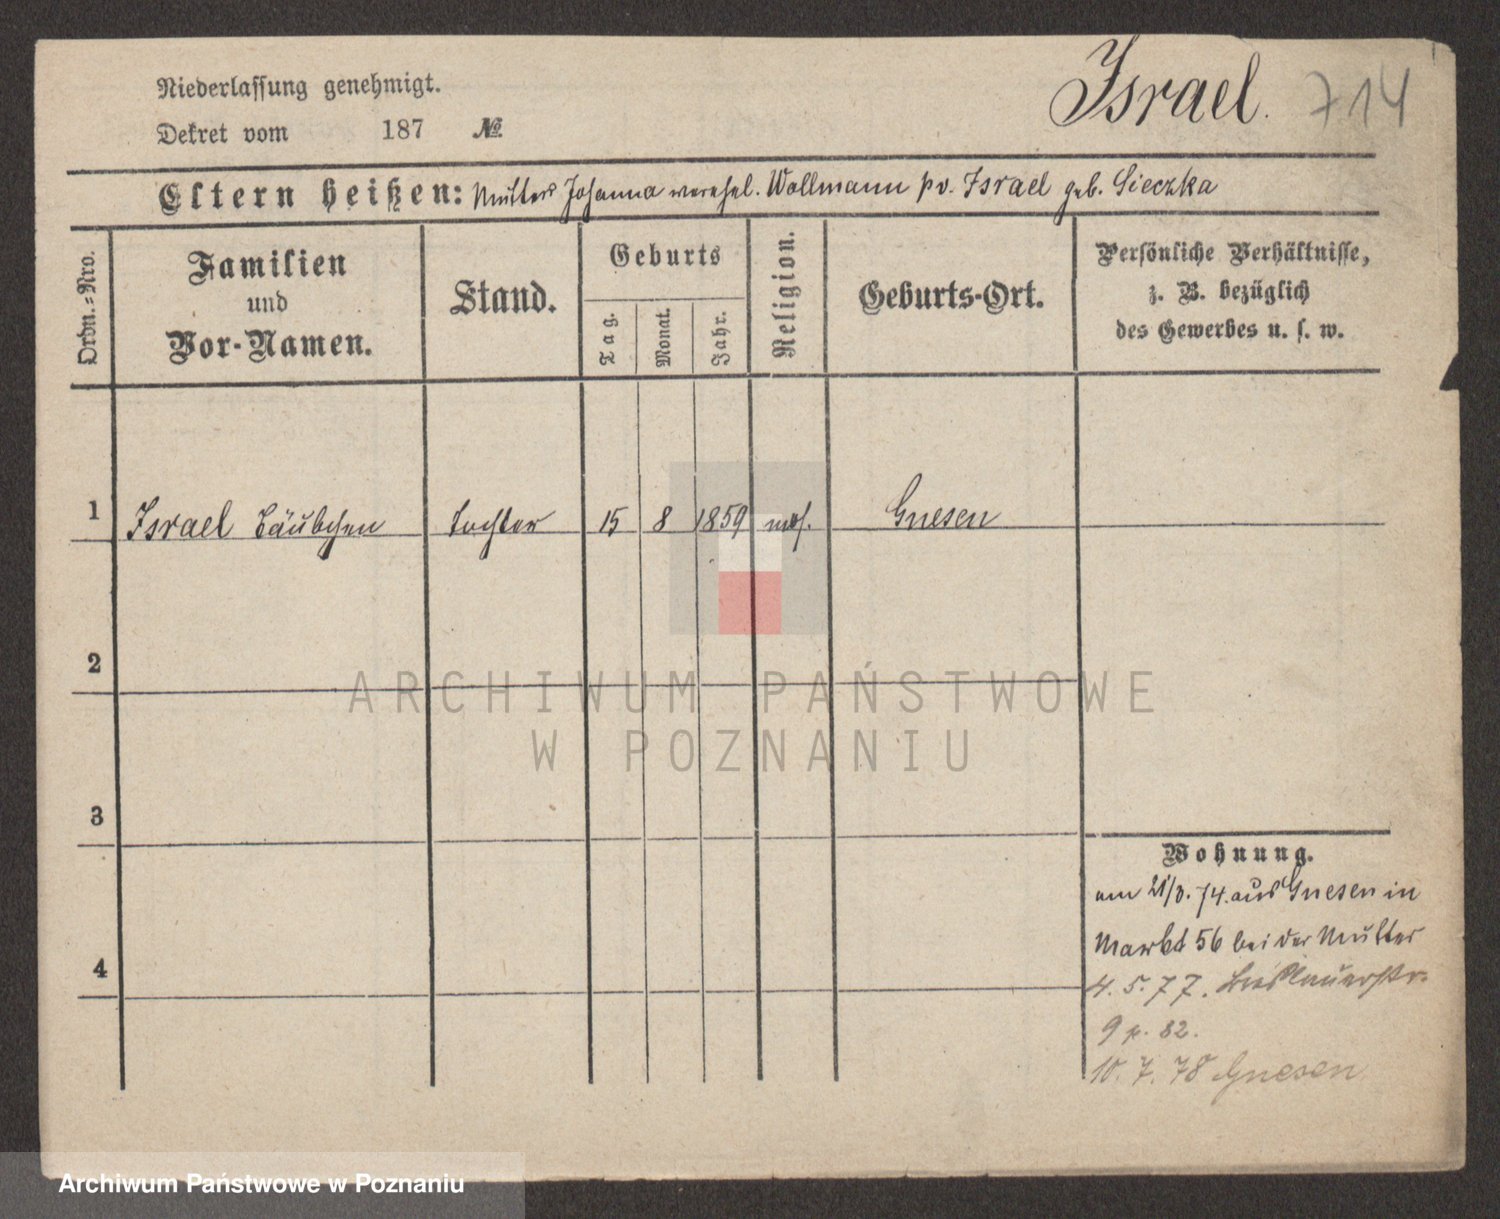 Niederlassung genehmigt.
Dekret vom 187 №
Israel. 714
Eltern heißen: Mutter Johanna verehel. Wollmann pv. Israel geb. Sieczka
Ordn.-Nro.
Familien
und
Vor-Namen.
Stand.
Geburts
Tag.
Monat.
Jahr.
Religion.
Geburts-Ort.
Persönliche Verhältnisse,
z. B. bezüglich
des Gewerbes u. s. w.
1 Israel Täubchen Tochter 15 8 1859 mos. Gnesen
2
ARCHIWUM PAŃSTWOWE
W POZNANIU
3
Wohnung.
am 21/8. 74. aus Gnesen in
Markt 56 bei der Mutter
4
4. 5. 77. Breslauerstr.
9 p. 82.
10. 7. 78 Gnesen
Archiwum Państwowe w Poznaniu